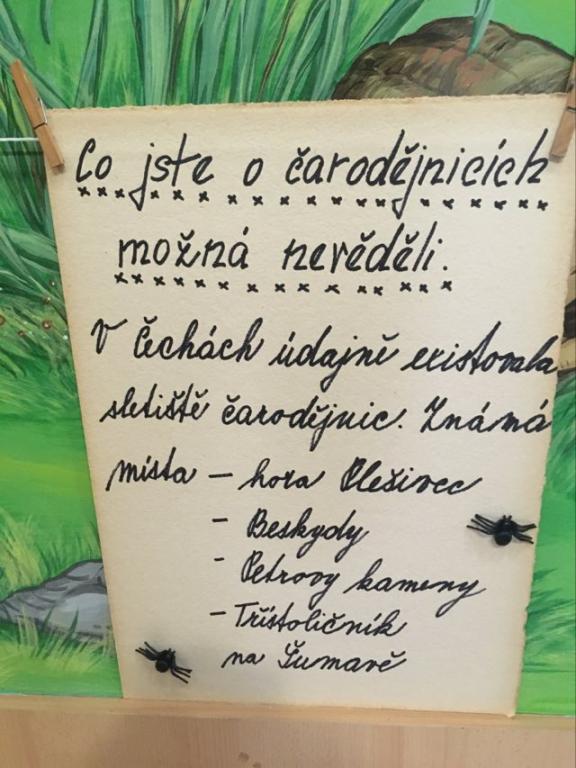 Co jste o čarodějnicích
možná nevěděli.
V Čechách údajně existovala
sletiště čarodějnic. Známá
místa – hora Plešivec
- Beskydy
- Petrovy kameny
- Třístoličník
na Šumavě